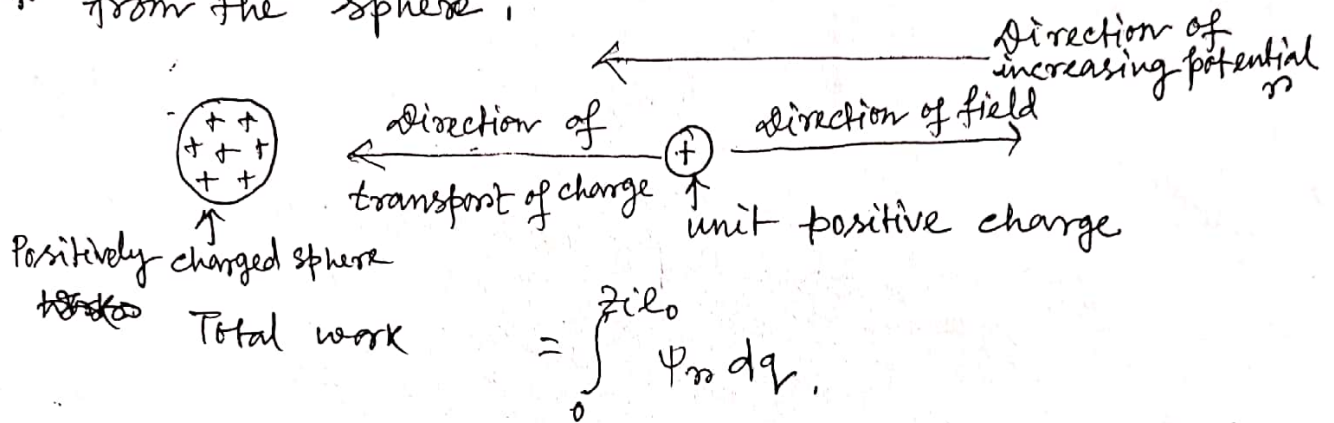 from the sphere,
Direction of
increasing potential
Direction of
Direction of field
+ +
+ + +
+ +
+
transport of charge
unit positive charge
Positively charged sphere
Total work = ∫₀^{zᵢe₀} ψ dq,